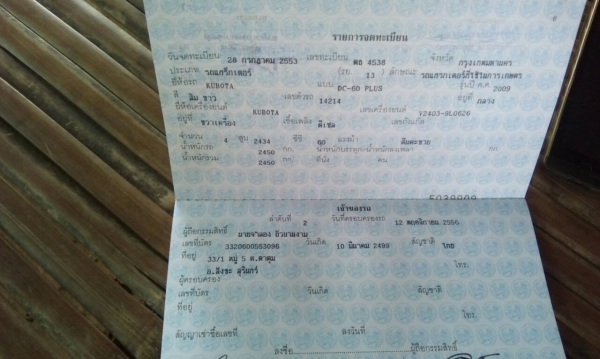 6
รายการจดทะเบียน
วันจดทะเบียน 28 กรกฎาคม 2553 เลขทะเบียน ตธ 4538 จังหวัด กรุงเทพมหานคร
ประเภท รถแทร็กเตอร์ (รย. 13 ) ลักษณะ รถแทรกเตอร์ที่ใช้ในการเกษตร
ยี่ห้อรถ KUBOTA แบบ DC-60 PLUS รุ่นปี ค.ศ. 2009
สี ส้ม ขาว เลขตัวรถ 14214 อยู่ที่ กลาง
ยี่ห้อเครื่องยนต์ KUBOTA เลขเครื่องยนต์ V2403-9L0626
อยู่ที่ ขวาเครื่อง เชื้อเพลิง ดีเซล เลขถังแก๊ส
จำนวน 4 สูบ 2434 ซีซี
น้ำหนักรถ 2450 กก. น้ำหนักบรรทุก/น้ำหนักลงเพลา กก.
น้ำหนักรวม 2450 กก. ที่นั่ง คน
เจ้าของรถ
ลำดับที่ 2 วันที่ครอบครองรถ 12 พฤศจิกายน 2556
ผู้ถือกรรมสิทธิ์
เลขที่บัตร 3320600563096 วันเกิด 10 มีนาคม 2499 สัญชาติ ไทย
ที่อยู่ 33/1 หมู่ 5 ต.ตาตุม
อ.สังขะ สุรินทร์ โทร.
ผู้ครอบครอง
เลขที่บัตร วันเกิด สัญชาติ
ที่อยู่
โทร.
สัญญาเช่าซื้อเลขที่ ลงวันที่
ลงชื่อ ผู้ถือกรรมสิทธิ์